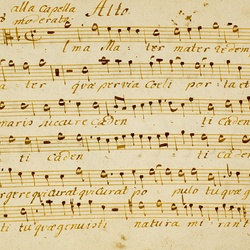 alla Capella Alto
moderato
lma Ma ter mater redem
ter quæ pervia Cœli porta
maris succure caden ti caden
ti caden ti caden
surgere qui curat qui curat po pulo tu quæ g
ti tu quæ genuisti natura mi ran